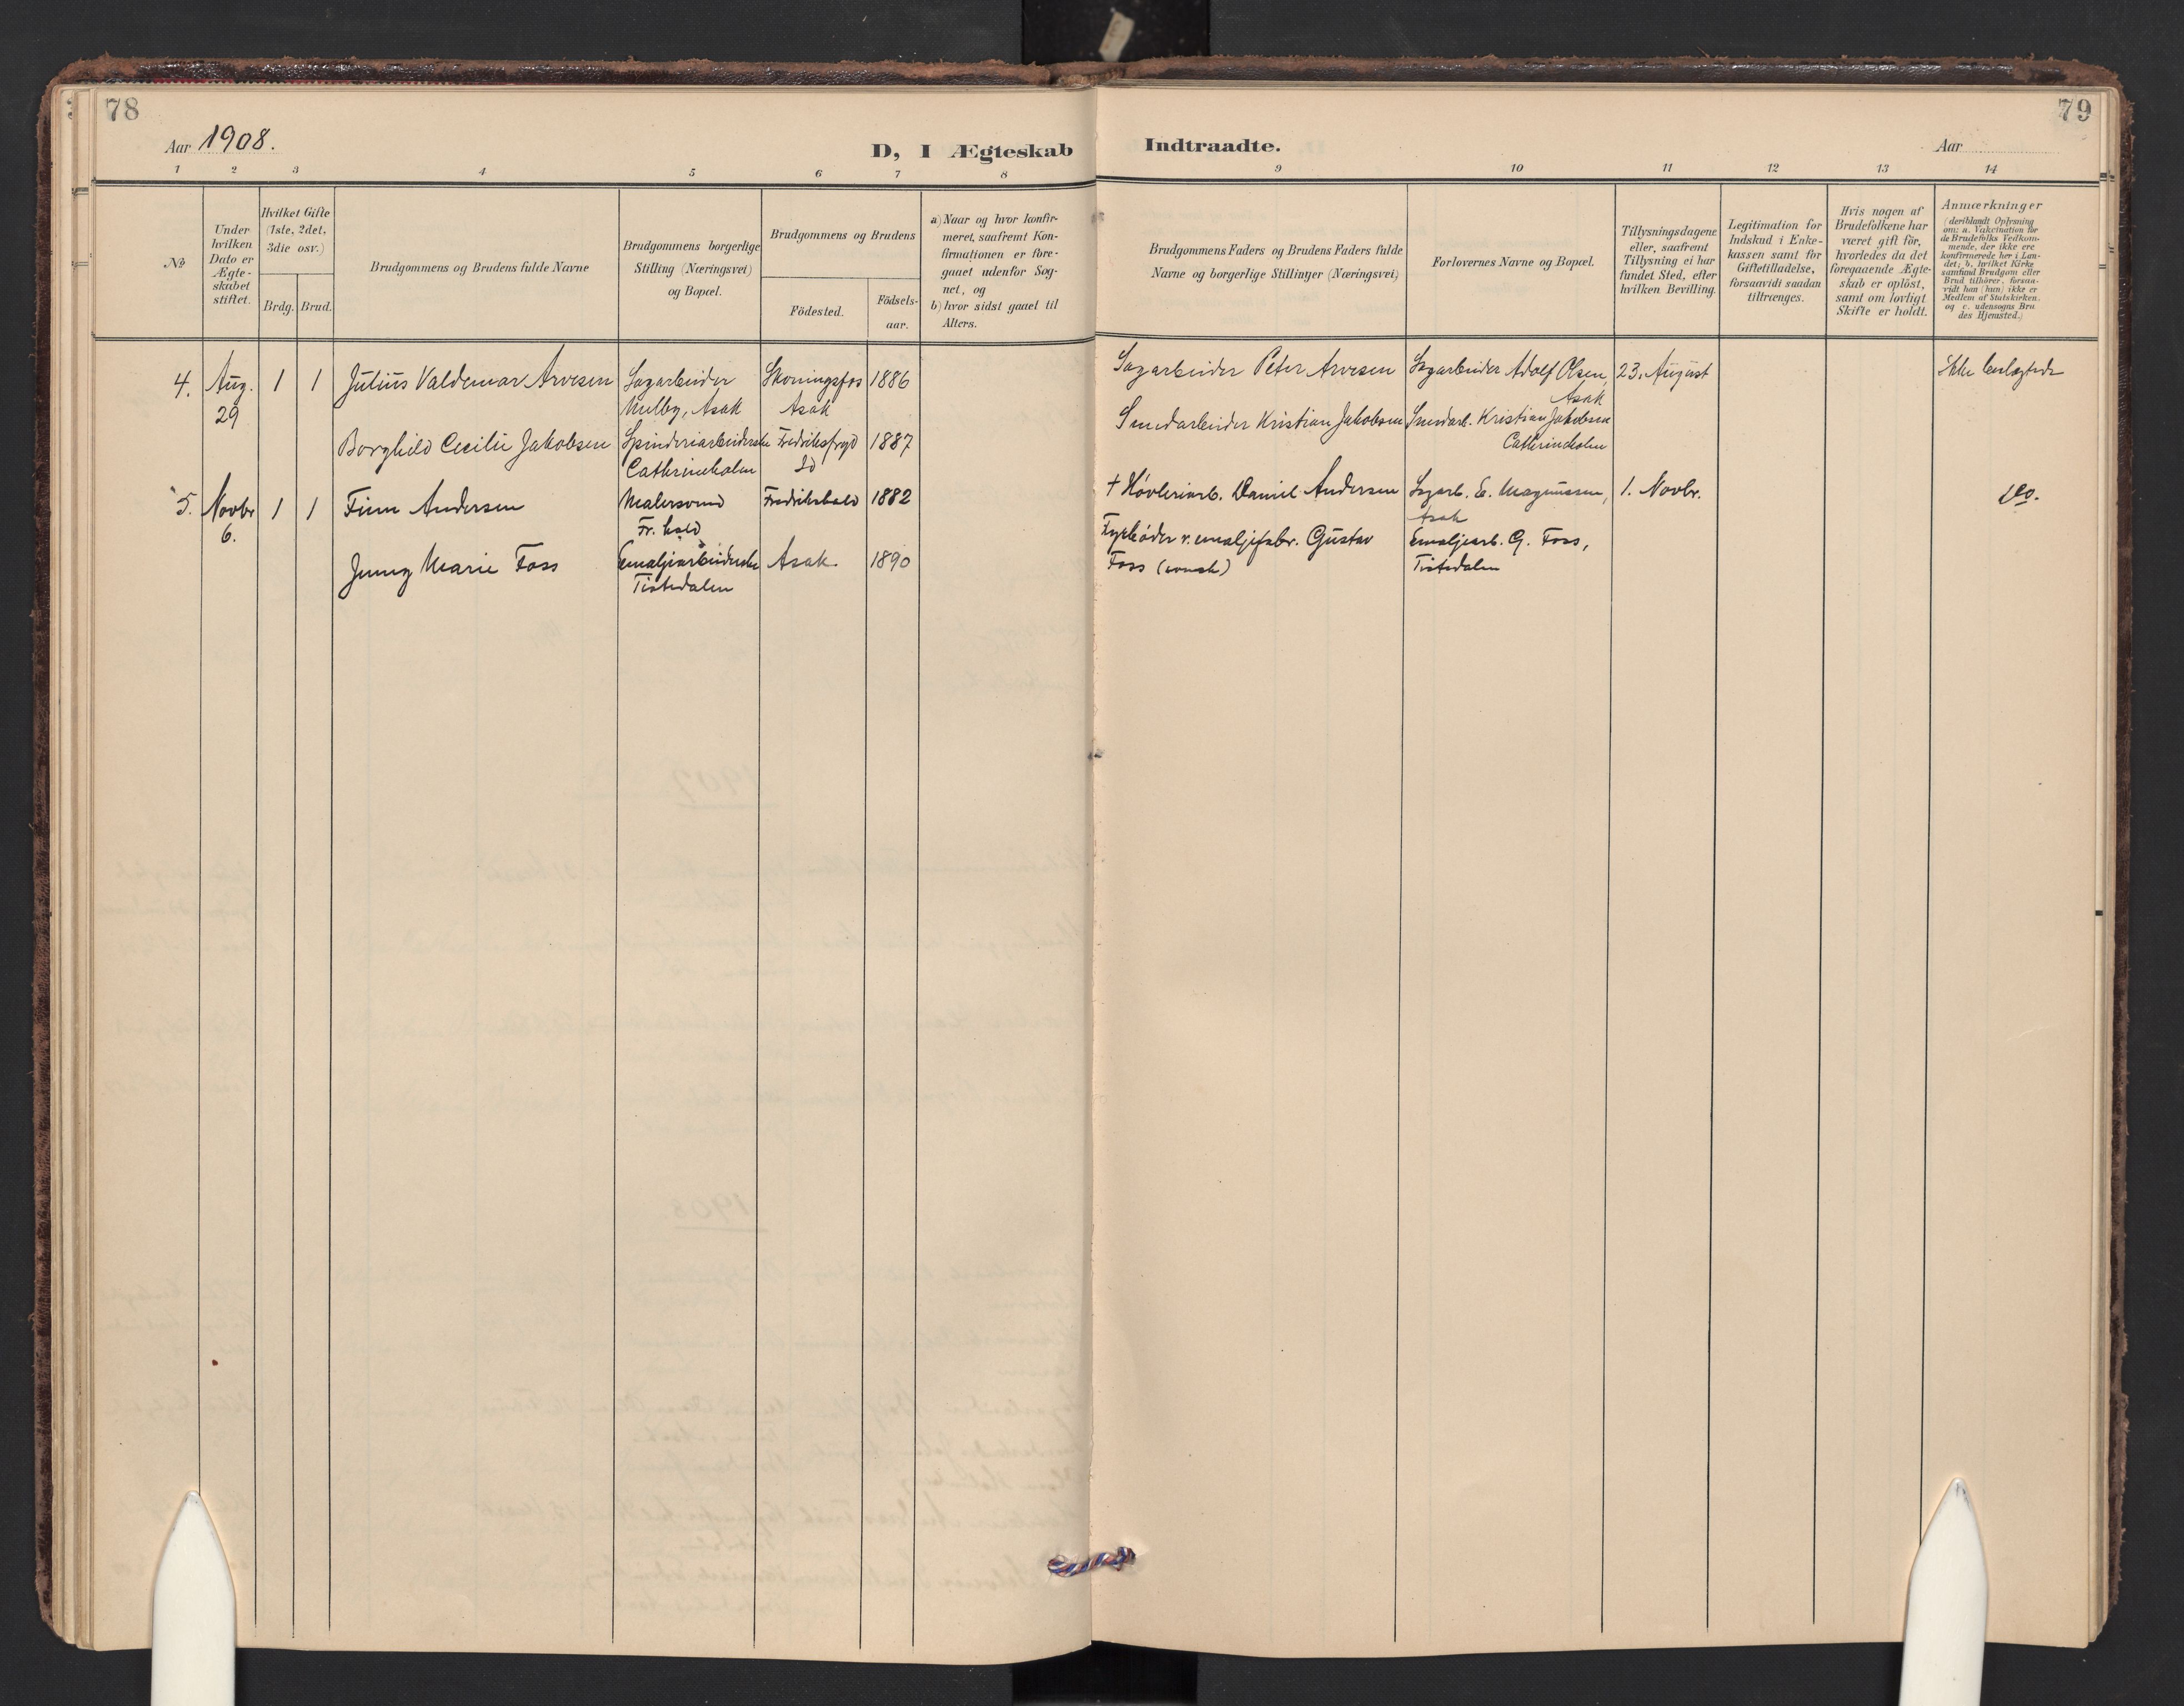 78
Aar 1908.
D, I Ægteskab
1 2 3 4 5 6 7 8
No
Under hvilken Dato er Ægte-skabet stiftet.
Hvilket Gifte (1ste, 2det, 3die osv.)
Brdg. Brud.
Brudgommens og Brudens fulde Navne
Brudgommens borgerlige
Stilling (Næringsvei)
og Bopæl.
Brudgommens og Brudens
Födested.
Födsels-
aar.
a) Naar og hvor konfir-
meret, saafremt Kon-
firmationen er fore-
gaaet udenfor Sog-
net, og
b) hvor sidst gaaet til
Alters.
4. Aug. 1 1 Julius Valdemar Arvesen Sagarbeider Skoningsfos 1886
29 Melby, Asak Asak
Borghild Cecilie Jakobsen Spinderiarbeiderske Fredriksfryd 1887
Cathrineholm Id
5. Novbr 1 1 Finn Andersen Malersvend Fredrikshald 1882
6. Fr.hald
Jenny Marie Foss Emaljearbeiderske Asak. 1890
Tistedalen
79
Indtraadte.
Aar
9 10 11 12 13 14
Brudgommens Faders og Brudens Faders fulde
Navne og borgerlige Stillinger (Næringsvei)
Forlovernes Navne og Bopæl.
Tillysningsdagene
eller, saafremt
Tillysning ei har
fundet Sted, efter
hvilken Bevilling.
Legitimation for
Indskud i Enke-
kassen samt for
Giftetilladelse,
forsaavidt saadan
tiltrænges.
Hvis nogen af
Brudefolkene har
været gift för,
hvorledes da det
foregaaende Ægte-
skab er oplöst,
samt om lovligt
Skifte er holdt.
Anmærkninger
(deriblandt Oplysning
om: a. Vakcination för
de Brudefolks Vedkom-
mende, der ikke ere
konfirmerede her i Lan-
det; b. hvilket Kirke
samfund Brudgom eller
Brud tilhörer, forsaa-
vidt han (hun) ikke er
Medlem af Statskirken.
og c. udensogns Bru
des Hjemsted.)
Sagarbeider Peter Arvesen Sagarbeider Adolf Olsen, 23. August Ikke beslægtede
Asak
Smedarbeider Kristian Jakobsen Smedarb. Kristian Jakobsen
Cathrineholm
† Høvleriarb. Daniel Andersen Sagarb. E. Magnussen, 1. Novbr. do.
Asak
Fyrbøder v. emaljefabr. Gustav Emaljearb. G. Foss,
Foss (svensk) Tistedalen